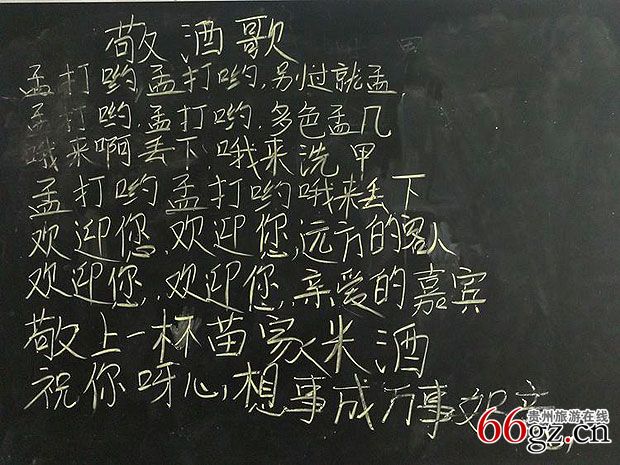 敬酒歌
孟打哟,孟打哟,另过就孟
孟打哟,孟打哟,多色孟几
哦来啊丢下哦来洗甲
孟打哟孟打哟哦来丢下
欢迎您,欢迎您,远方的客人
欢迎您,,欢迎您,亲爱的嘉宾
敬上一杯苗家米酒
祝你呀心,想事成万事如意
66gz.cn 贵州旅游在线